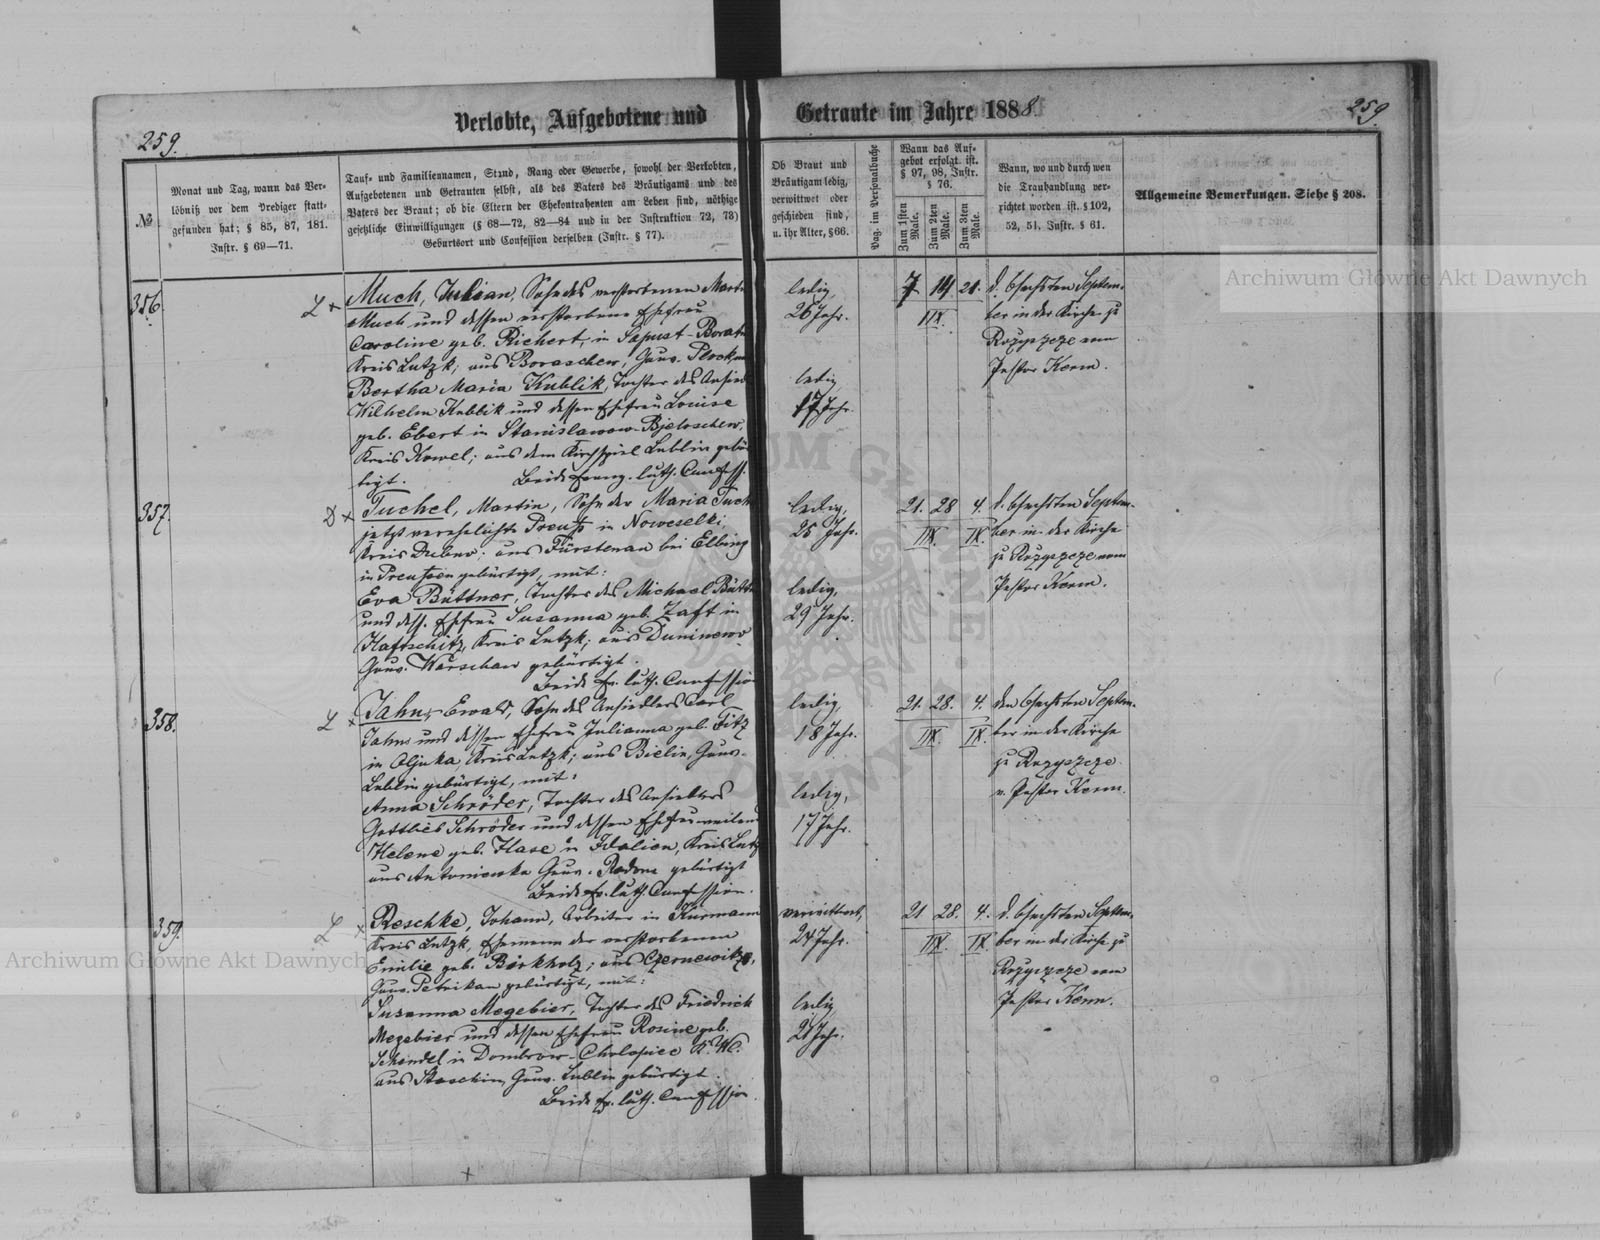 Verlobte, Aufgebotene und Getraute im Jahre 1888.
259.
259
№
Monat und Tag, wann das Ver-
löbniß vor dem Prediger statt-
gefunden hat; § 85, 87, 181.
Instr. § 69—71.
Tauf- und Familiennamen, Stand, Rang oder Gewerbe, sowohl der Verlobten,
Aufgebotenen und Getrauten selbst, als des Vaters des Bräutigams und des
Vaters der Braut; ob die Eltern der Ehekontrahenten am Leben sind, nöthige
gesetzliche Einwilligungen (§ 68—72, 82—84 und in der Instruktion 72, 73)
Geburtsort und Confession derselben (Instr. § 77).
Ob Braut und
Bräutigam ledig,
verwittwet oder
geschieden sind,
u. ihr Alter, § 66.
Pag. im Personalbuche
Wann das Auf-
gebot erfolgt ist.
§ 97, 98, Instr.
§ 76.
Zum 1sten
Male.
Zum 2ten
Male.
Zum 3ten
Male.
Wann, wo und durch wen
die Trauhandlung ver-
richtet worden ist. § 102,
52, 51. Instr. § 61.
Allgemeine Bemerkungen. Siehe § 208.
356.
L x
Much, Julian, Sohn des verstorbenen Martin
Much und dessen verstorbene Ehefrau
Caroline geb. Richert, in Sapust-
Kreis Lutzk; aus Boraschew, Gouv. Plock, mit
Bertha Maria Kublik, Tochter des
Wilhelm Kublik und dessen Ehefrau Louise
geb. Ebert in Stanislawow-
Kreis Kowel; aus dem Kirchspiel Lublin gebür-
tigt.
Beide evang. luth. Confess.
ledig,
26 Jahr.
ledig,
17 Jahr.
7 14 21.
IIX.
d. 6sechsten Septem-
ber in der Kirche zu
Rozyszcze vom
Pastor Kerm.
357.
D x
Tuchel, Martin, Sohn der Maria
jetzt verehelichte Preuß in Noweselki,
Kreis Dubno; aus Fürstenau bei Elbing
in Preußen gebürtigt, mit:
Eva Büttner, Tochter des Michael
und dess. Ehefrau Susanna geb. Zaft in
Kreis Lutzk; aus Duninow
Gouv. Warschau gebürtigt.
Beide ev. luth. Confession
ledig,
25 Jahr.
ledig,
29 Jahr.
21. 28 4.
IIX. IX
d. 6sechsten Septem-
ber in der Kirche
zu Rozyszcze vom
Pastor Kerm.
358.
L x
Jahns, Ewald, Sohn des Ansiedlers Carl
Jahns und dessen Ehefrau Julianna geb. Fitz
in Oljuka Kreis Lutzk; aus Bielin, Gouv.
Lublin gebürtigt, mit:
Anna Schröder, Tochter des Ansiedlers
Gottlieb Schröder und dessen Ehefrau weiland
Helene geb. Hase in Idalien, Kreis Lutzk
aus Antoniewka Gouv. Radom gebürtigt
Beide ev. luth. Confession.
ledig,
18 Jahr.
ledig,
17 Jahr.
21. 28. 4.
IIX. IX.
den 6sechsten Septem-
ber in der Kirche
zu Rozyszcze
v. Pastor Kerm.
359.
L x
Reschke, Johann, Arbeiter in
Kreis Lutzk, Ehemann der verstorbenen
Emilie geb. Birkholz; aus Czernewitze,
Gouv. Petrikau gebürtigt, mit:
Susanna Megebier, Tochter des Friedrich
Megebier und dessen Ehefrau Rosine geb.
Schindel in Dombrow-
aus Gouv. Lublin gebürtigt.
Beide ev. luth. Confession.
verwittwet,
24 Jahr.
ledig
21 Jahr.
21 28. 4.
IIX. IX.
d. 6sechsten Septem-
ber in der Kirche zu
Rozyszcze vom
Pastor Kerm.
x
Archiwum Główne Akt Dawnych
Archiwum Główne Akt Dawnych